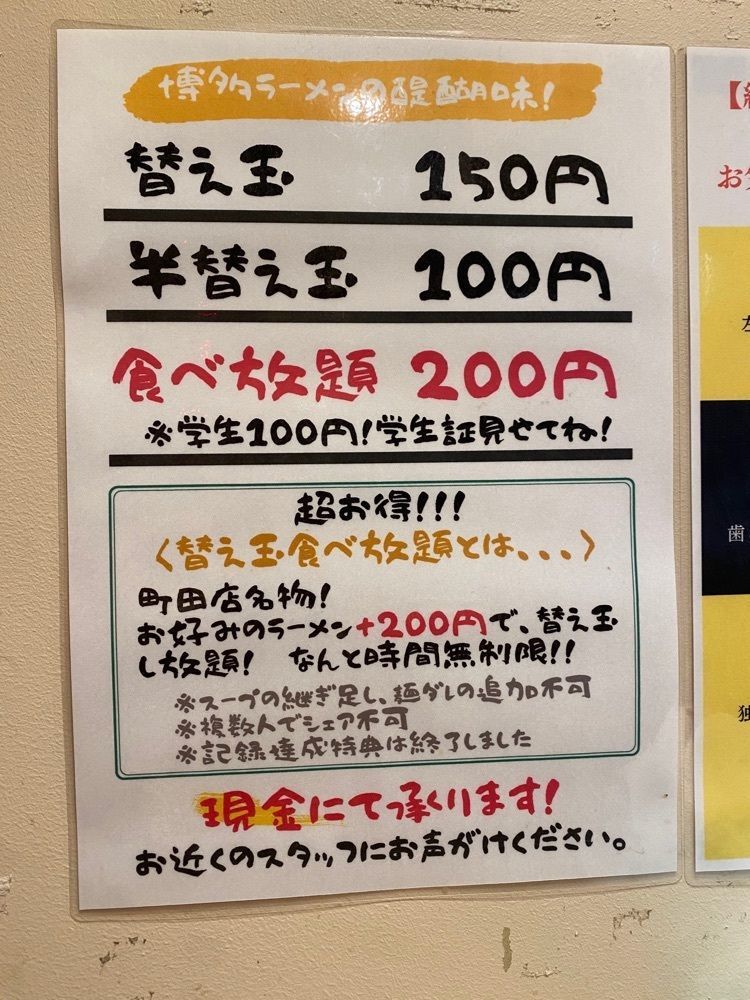 博多ラーメンの醍醐味!
替え玉 150円
半替え玉 100円
食べ放題 200円
※学生100円!学生証見せてね!
超お得!!!
〈替え玉食べ放題とは、、、〉
町田店名物!
お好みのラーメン+200円で、替え玉
し放題! なんと時間無制限!!
※スープの継ぎ足し、麺ダレの追加不可
※複数人でシェア不可
※記録達成特典は終了しました
現金にて承ります!
お近くのスタッフにお声がけください。
【
お
歯
独